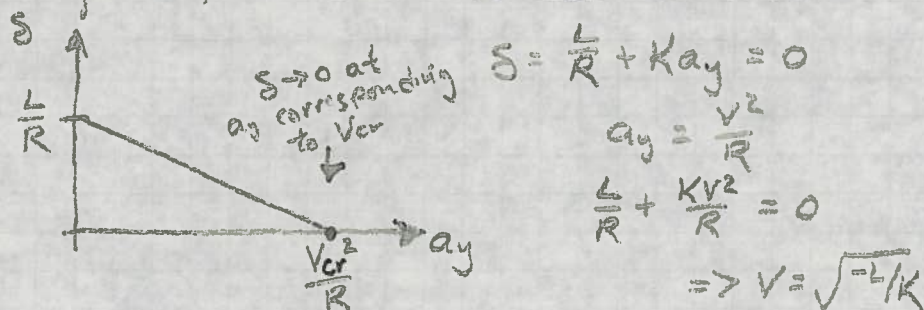 δ
L/R
δ→0 at
ay corresponding
to Vcr
Vcr²/R
ay
δ = L/R + Kay = 0
ay = V²/R
L/R + KV²/R = 0
=> V = √(-L/K)